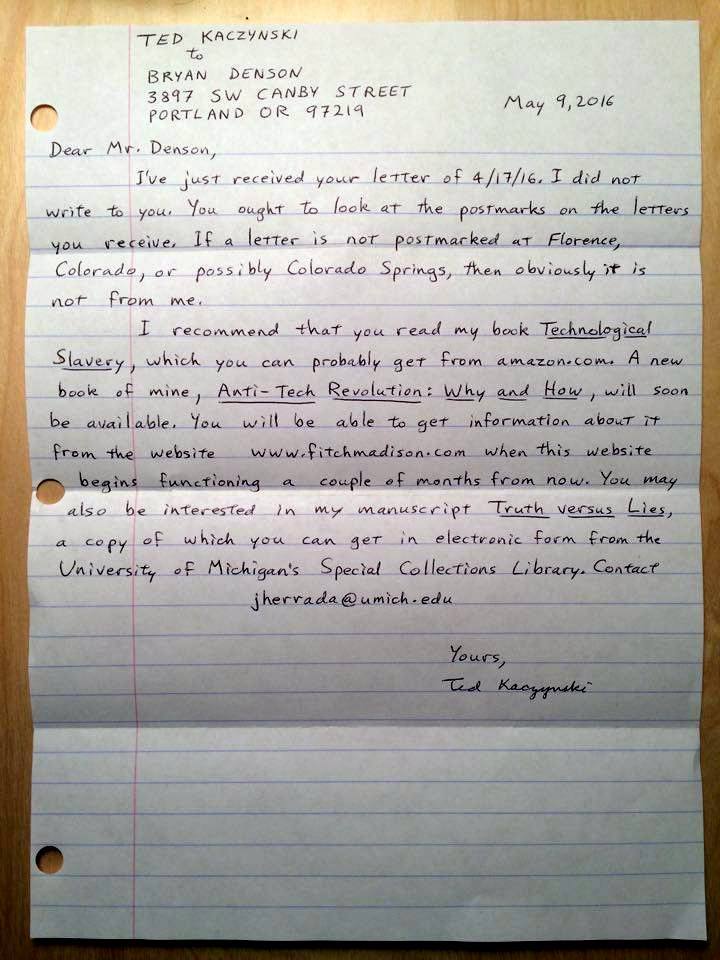 TED KACZYNSKI
to
BRYAN DENSON
3897 SW CANBY STREET
PORTLAND OR 97219
May 9, 2016
Dear Mr. Denson,
I've just received your letter of 4/17/16. I did not
write to you. You ought to look at the postmarks on the letters
you receive. If a letter is not postmarked at Florence,
Colorado, or possibly Colorado Springs, then obviously it is
not from me.
I recommend that you read my book Technological
Slavery, which you can probably get from amazon.com. A new
book of mine, Anti-Tech Revolution: Why and How, will soon
be available. You will be able to get information about it
from the website www.fitchmadison.com when this website
begins functioning a couple of months from now. You may
also be interested in my manuscript Truth versus Lies,
a copy of which you can get in electronic form from the
University of Michigan's Special Collections Library. Contact
jherrada@umich.edu
Yours,
Ted Kaczynski